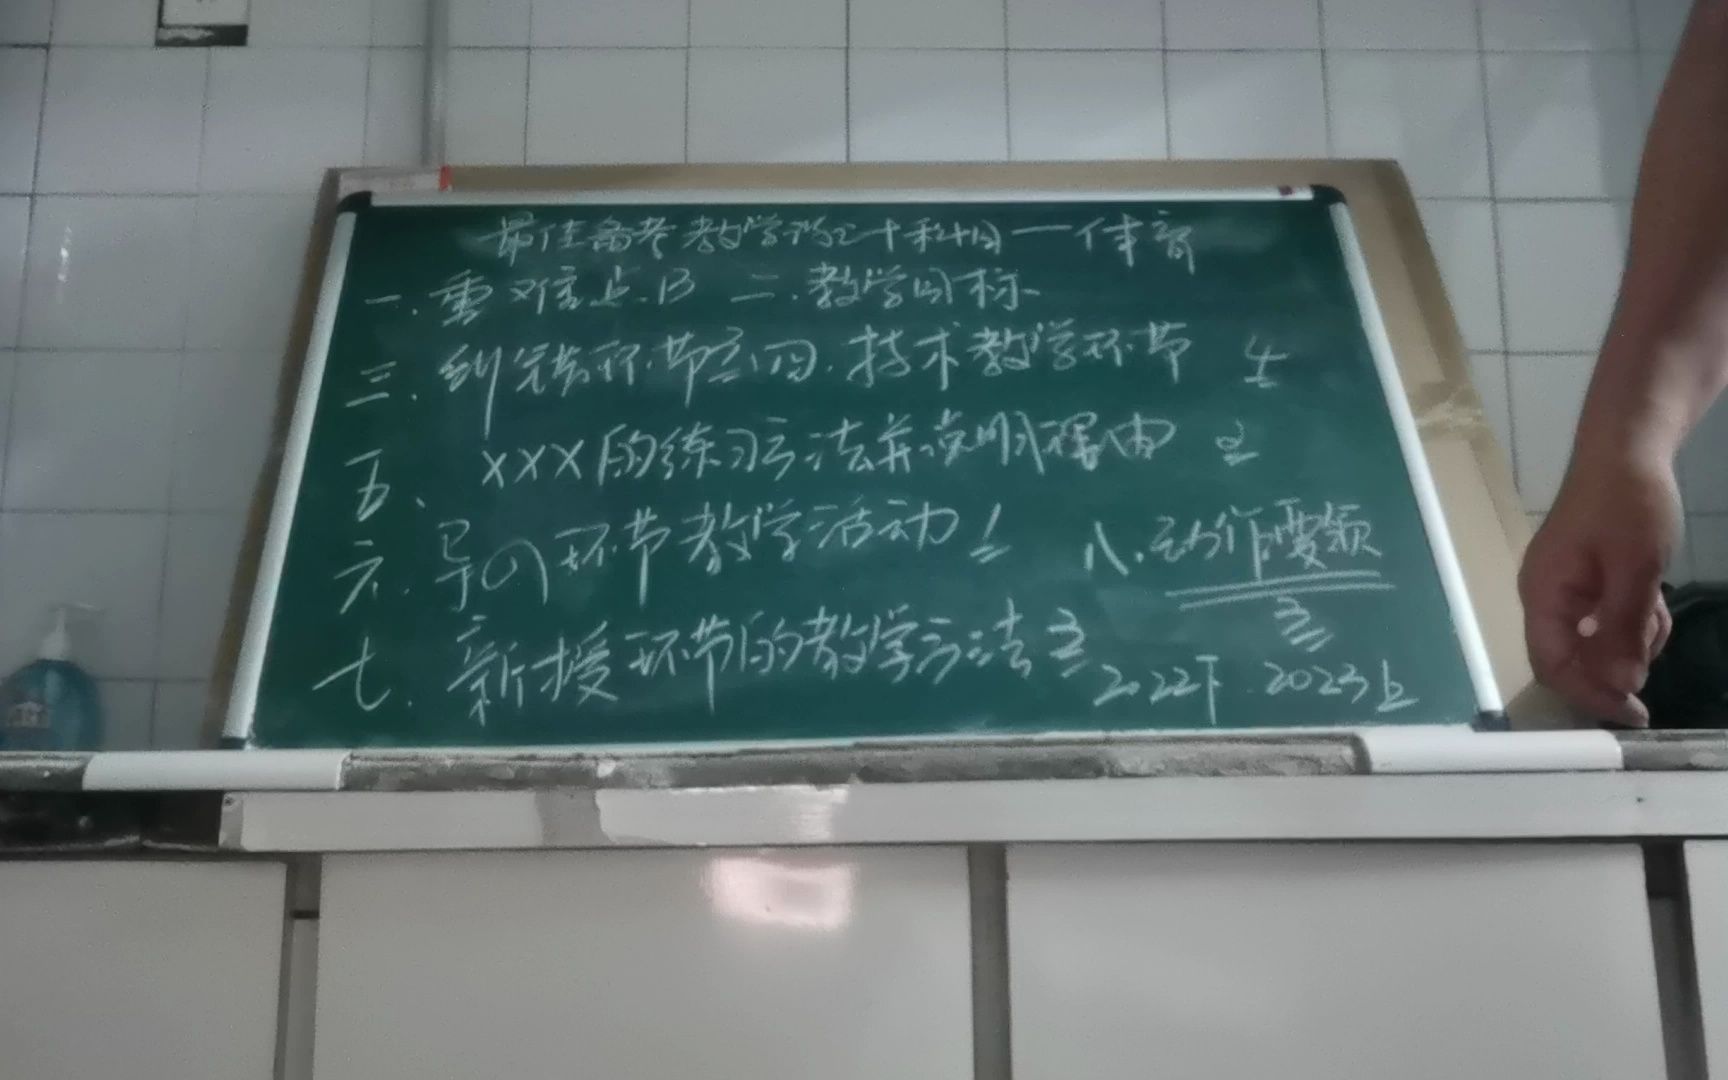 最佳备考教学设计科目一体育
一.重难点.13 二.教学目标
三.纠错环节 四.技术教学环节 4
五、XXX的练习方法并说明理由 2
六.导入环节教学活动 1 八.动作要领
3
七.新授环节的教学方法 3
2022下.2023上